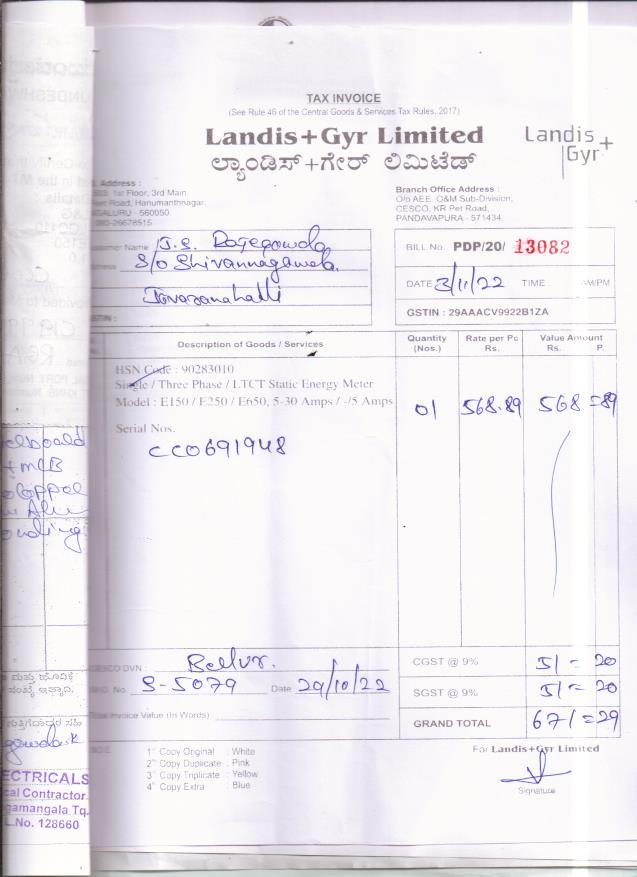 TAX INVOICE
(See Rule 46 of the Central Goods & Services Tax Rules, 2017)
Landis+Gyr Limited
ಲ್ಯಾಂಡಿಸ್+ಗೇರ್ ಲಿಮಿಟೆಡ್
Landis+
Gyr
Address :
1st Floor, 3rd Main
Road, Hanumanthnagar,
560050
26678515
Branch Office Address :
O/o AEE. O&M Sub-Division,
CESCO, KR Pet Road,
PANDAVAPURA - 571434.
Name
S/o Shivannagowda
BILL No. PDP/20/ 13082
DATE 3/11/22 TIME : AM/PM
GSTIN : 29AAACV9922B1ZA
Description of Goods / Services
Quantity (Nos.)
Rate per Pc Rs.
Value Amount Rs. P.
HSN Code : 90283010
Single / Three Phase / LTCT Static Energy Meter
Model : E150 / E250 / E650, 5-30 Amps / -/5 Amps
01 568.89 568=89
Serial Nos.
CC0691948
DVN : Bellur.
No. S-5079 Date 29/10/22
Invoice Value (In Words)
CGST @ 9% 51=20
SGST @ 9% 51=20
GRAND TOTAL 671=29
1st Copy Original : White
2nd Copy Duplicate : Pink
3rd Copy Triplicate : Yellow
4th Copy Extra : Blue
For Landis+Gyr Limited
Signature
+ MCB
ECTRICALS
cal Contractor
gamangala Tq.
L.No. 128660